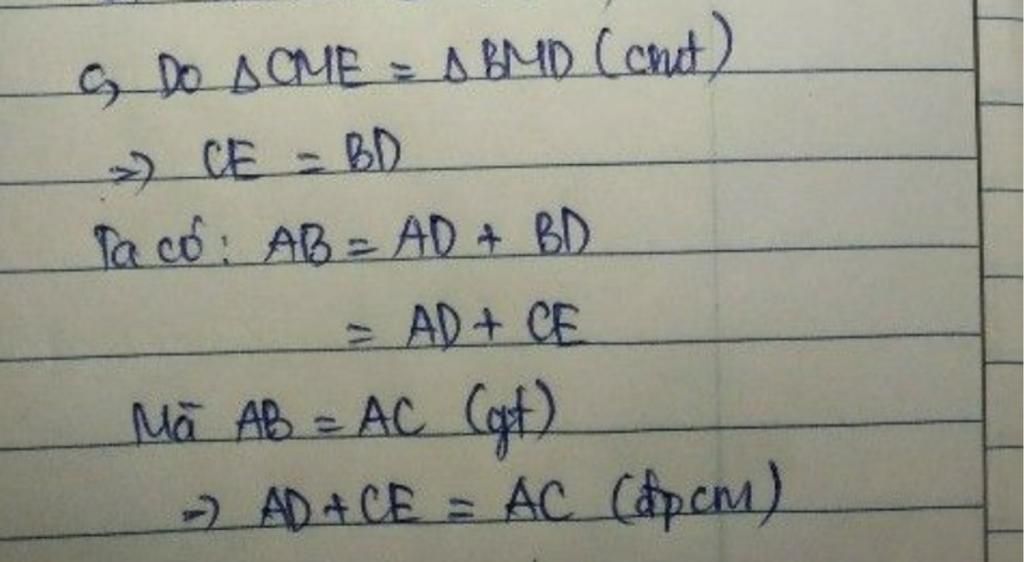 c, Do Δ CME = Δ BMD (cmt)
=> CE = BD
Ta có: AB = AD + BD
= AD + CE
Mà AB = AC (gt)
=> AD + CE = AC (đpcm)